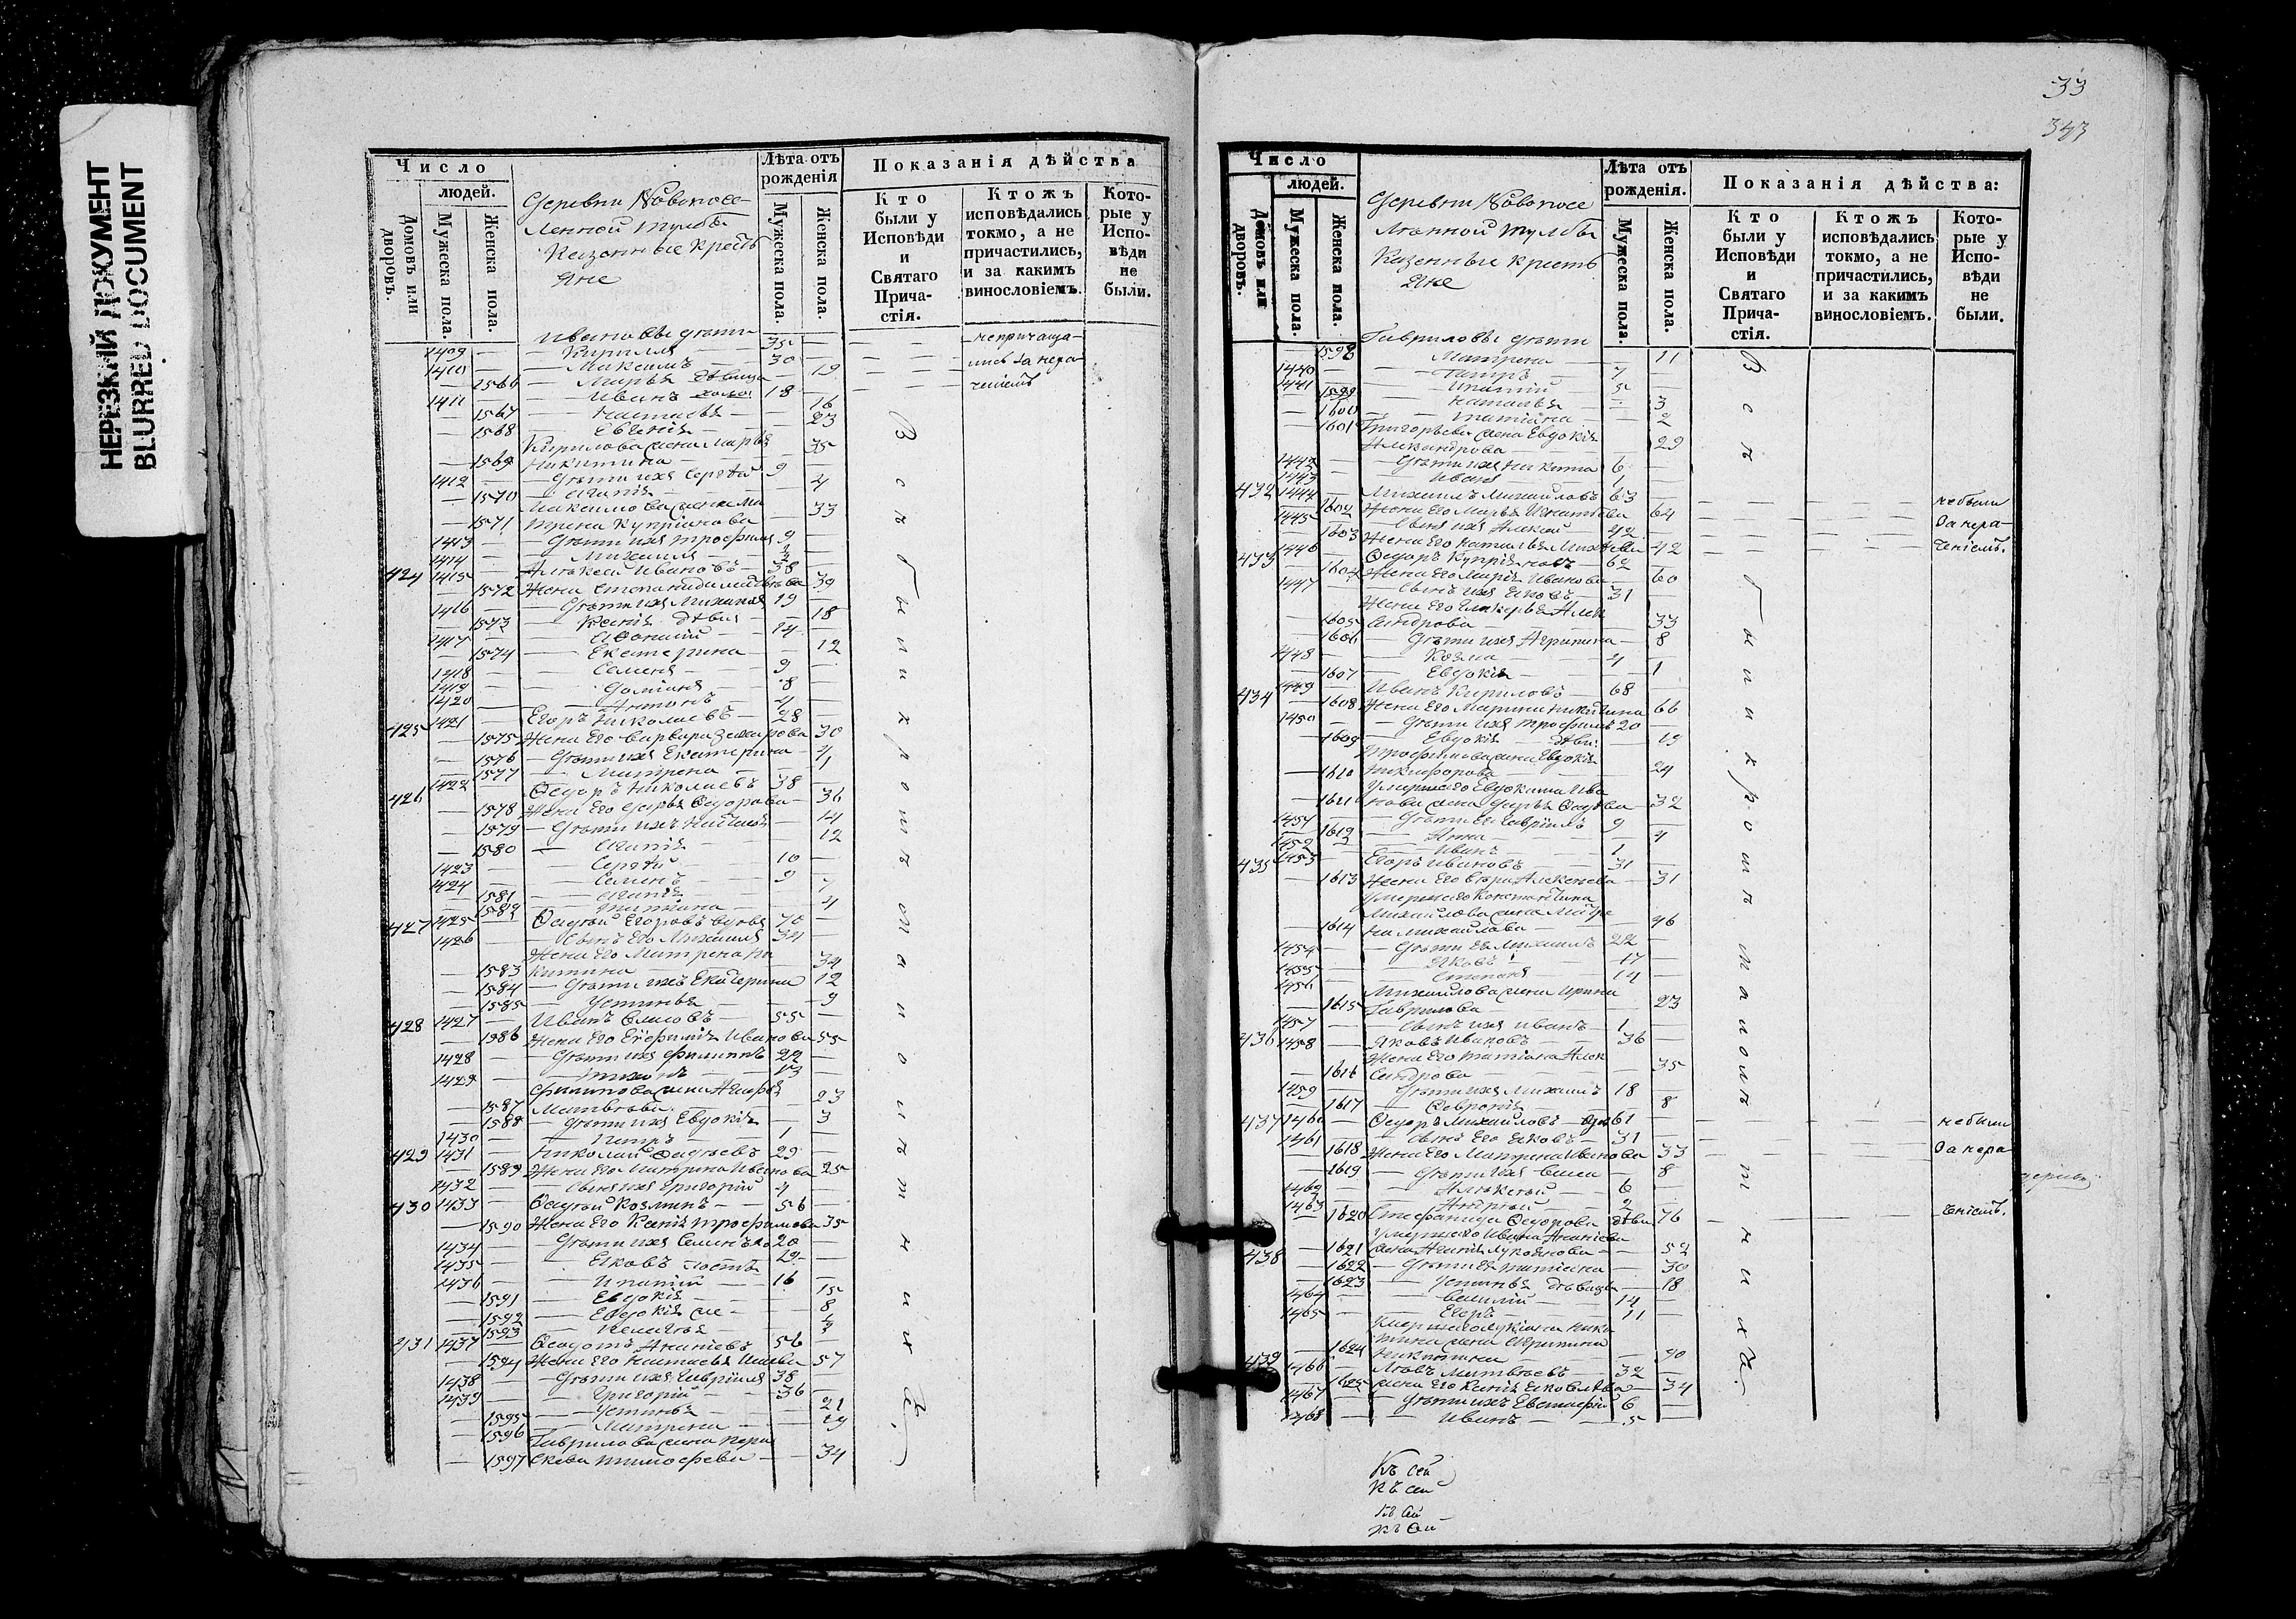 НЕРЕЗКИЙ ДОКУМЕНТ
BLURRED DOCUMENT
Число
людей.
Домовъ или дворовъ.
Мужеска пола.
Женска пола.
Деревни Новопосе-
ленной
Казенные кресть
яне
Лѣта отъ рожденія
Мужеска пола.
Женска пола.
Показанія дѣйства
Кто были у Исповѣди и Святаго Прича-стія.
Ктожъ исповѣдались токмо, а не причастились, и за какимъ винословіемъ.
Кото-рые у Испо-вѣди не были.
Ивановы дѣти
1409 — Кирилъ 35 непричаща-
1410 — Максимъ 30 лись за нера-
1566 — Марья дѣвица 19 чениемъ
1411 — Иванъ холос 18
1567 — Настасья 16
1568 — Евгенія 23
Кирилова жена Марья
1569 Никитина 35
1412 — Дѣти ихъ Сергѣй 9
1570 — Агапія 4
Максимова жена Ма
1571 трена Купріянова 33
1413 — Дѣти ихъ Трофимъ 9
1414 — Михаилъ
424 1415 — Алексѣй Ивановъ 38
1572 Жена Степанида Матвѣева 39
1416 — Дѣти ихъ Михаилъ 19
1573 — Ксенія дѣвица 18
1417 — Афонасій 14
1574 — Екатерина 12
1418 — Семенъ 9
1419 — Даміанъ 8
1420 — Антонъ 4
425 1421 — Егоръ Николаевъ 28
1575 Жена Его Варвара Захарова 30
1576 — Дѣти ихъ Екатерина 4
1577 — Матрена 1
426 1422 — Ѳедоръ Николаевъ 38
1578 Жена Его Дарья Ѳедорова 36
1579 — Дѣти ихъ Наталья 14
1580 — Агапія 12
1423 — Сергѣй 10
1424 — Семенъ 9
1581 — Агапія 7
1582 — Татіана 4
427 1425 — Ѳадѣй Егоровъ вдовъ 70
1426 — Сынъ Его Михаилъ 34
Жена Его Матрена Ни
1583 китина 34
1584 — Дѣти ихъ Екатерина 12
1585 — Устинья 9
428 1427 — Иванъ 55
1586 Жена Его Евфимія Иванова 55
1428 — Дѣти ихъ Филиппъ 22
1429 — Тихонъ 13
Филипова жена Агафья
1587 Матвѣева 23
1588 — Дѣти ихъ Евдокія 3
1430 — Петръ 1
429 1431 — Николай Ѳадѣевъ 29
1589 Жена Его Матрена Иванова 25
1432 — Сынъ ихъ Григорій 4
430 1433 — Ѳадѣй Козминъ 56
1590 Жена Его Ксенія Трофимова 35
1434 — Дѣти ихъ Семенъ 20
1435 — Яковъ 19
1436 — Ипатій 16
1591 — Евдокія 15
1592 — Евдокія 8
1593 — Пелагея
431 1437 — Ѳедотъ Ананіевъ 56
1594 Жена Его Настасья 57
1438 — Дѣти ихъ Гаврилъ 38
1439 — Григорій 36
1595 — Устинья 21
1596 — Матрена 19
Гаврилова жена Пара
1597 скева Тимофеева 34
Всѣ были крошъ отмѣченныхъ.
33
343
Число
людей.
Домовъ или дворовъ.
Мужеска пола.
Женска пола.
Деревни Новопосе
Казенные кресть
яне
Лѣта отъ рожденія.
Мужеска пола.
Женска пола.
Показанія дѣйства:
Кто были у Исповѣди и Святаго Прича-стія.
Ктожъ исповѣдались токмо, а не причастились, и за какимъ винословіемъ.
Кото-рые у Испо-вѣди не были.
Гавриловы дѣти
1598 Матрена 11
1440 — Петръ 7
1441 — Ипатій 5
1599 Наталья 3
1600 — Татіана 2
Григорьева жена Евдокія
1601 Александрова 29
1442 — Дѣти ихъ Никита 6
1443 — Иванъ 1
432 1444 — Михаилъ Михайловъ 63 небыли
1602 Жена Его Марья Игнатьева 64 за нера-
1445 — Сынъ ихъ Алексѣй 42 чениемъ.
1603 Жена Его Наталья 42
433 1446 — Ѳедоръ Купріяновъ 62
1604 Жена Его Марія Иванова 60
1447 — Сынъ ихъ Яковъ 31
Жена Его Гликерья Алек
1605 сандрова 33
1606 — Дѣти ихъ Агрипина 8
1448 — Козма 4
1607 — Евдокія 1
434 1449 — Иванъ Кириловъ 68
1608 Жена Его Марина Никитина 66
1450 — Дѣти ихъ Трофимъ 20
1609 — Евдокія дѣви 19
Трофимова жена Евдокія
1610 Никифорова 24
Умершего Евдокима Ива
1611 нова жена Дарья 32
1451 — Дѣти Ея Гаврилъ 9
1612 — Анна 4
1452 — Иванъ 1
435 1453 — Егоръ Ивановъ 31
1613 Жена Его Алексѣева 31
Умершего Константина
Михайлова жена Матре
1614 на Михайлова 46
1454 — Дѣти Ея Михаилъ 22
1455 — Яковъ 17
1456 — Степанъ 14
Михайлова жена Ирина
1615 Гаврилова 23
1457 — Сынъ ихъ Иванъ 1
436 1458 — Яковъ Ивановъ 36
Жена Его Татіана Алек
1616 сандрова 35
1459 — Дѣти ихъ Михаилъ 18
1617 — Февронія 8
437 1460 — Ѳедоръ Михайловъ вдов 61 небыли
1461 — Сынъ Его Яковъ 31
1618 Жена Его Матрена Иванова 33 за нера
1619 — Дѣти ихъ 8
1462 — Алексѣй 6
1463 — Андрѣй 2
1620 Стефанида Ѳедорова дѣви 76 чениемъ.
Умершего Ивана Ананіева
438 1621 жена Агапія Лукоянова 52
1622 — Дѣти Ея Татіана 30
1623 — Устинья дѣвица 18
1464 — Василій 14
1465 — Егоръ 11
Умершего Лукіяна Ники
тина жена Агрипина
1624 Никитина 40
439 1466 — Левъ Матвѣевъ 32
1625 жена Его Ксенія Яковлева 34
1467 — Дѣти ихъ Евстафій 6
1468 — Иванъ 5
Къ сей
Къ сей
Къ сей
Къ сей